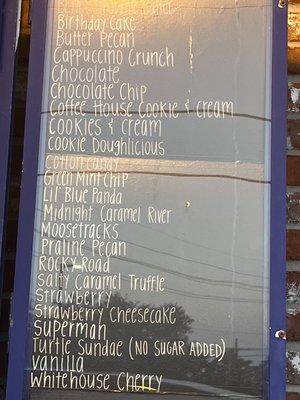 Birthday Cake
Butter Pecan
Cappuccino Crunch
Chocolate
Chocolate Chip
Coffee House Cookie & cream
Cookies & cream
Cookie Doughlicious
Cotton Candy
Green Mint Chip
Lil' Blue Panda
Midnight Caramel River
Moosetracks
Praline Pecan
Rocky Road
Salty Caramel Truffle
Strawberry
Strawberry Cheesecake
Superman
Turtle Sundae (NO SUGAR ADDED)
Vanilla
Whitehouse Cherry